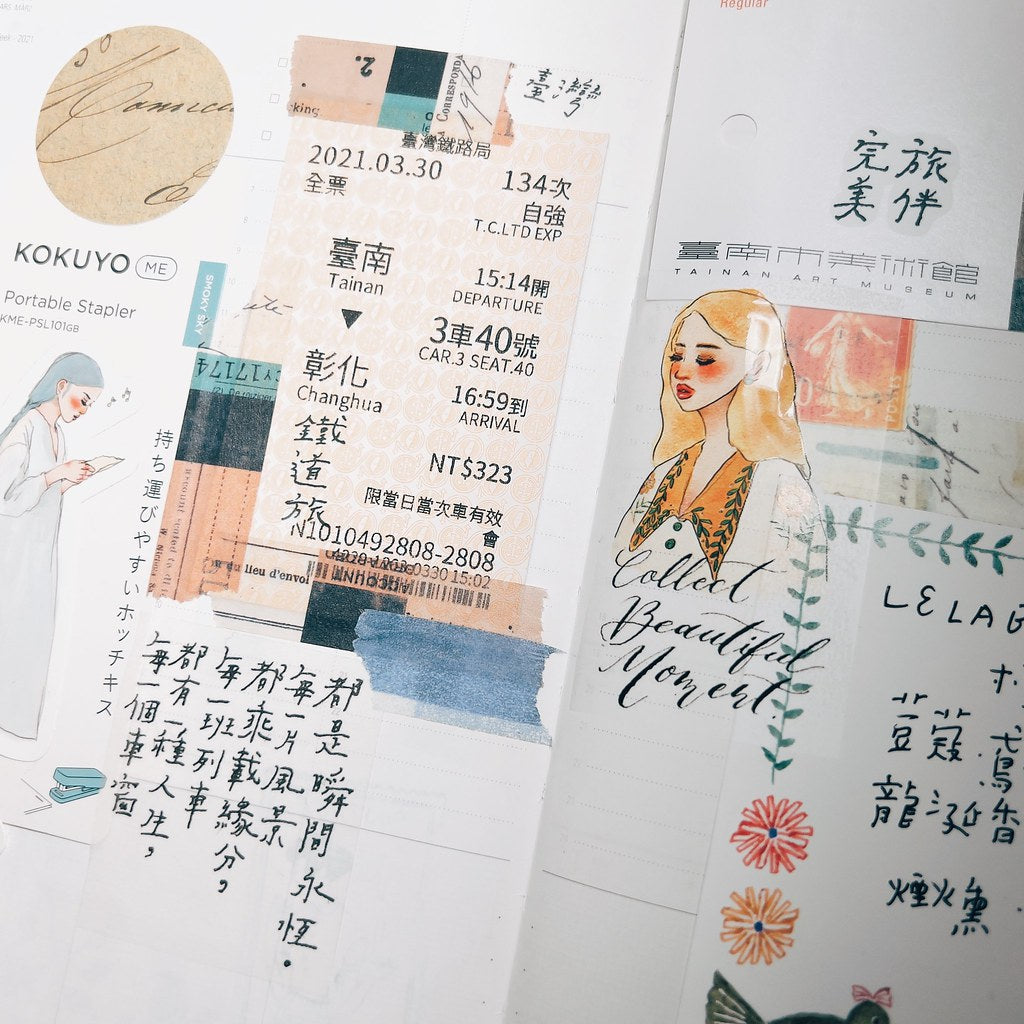 Regular
2.
CORRESPONDA
1916
臺灣
king.
臺灣鐵路局
2021.03.30
134次
全票
自強
T.C.LTD EXP
臺南
Tainan
15:14開
DEPARTURE
3車40號
CAR.3 SEAT.40
彰化
Changhua
16:59到
ARRIVAL
鐵道旅
NT$323
限當日當次車有效
會
N1010492808-2808
0330 15:02
ACCOUNT
du lieu d'envoi
KOKUYO ME
Portable Stapler
KME-PSL101GB
SMOKY SKY
持ち運びやすいホッチキス
每一個車窗
都有一種人生，
每一班列車
都乘載緣分，
每一片風景
都是瞬間永恆。
完美
旅伴
臺南市美術館
TAINAN ART MUSEUM
POSTES
Collect
Beautiful
Moment.
LELAB
荳蔻
鳶
龍涎香
煙火熏